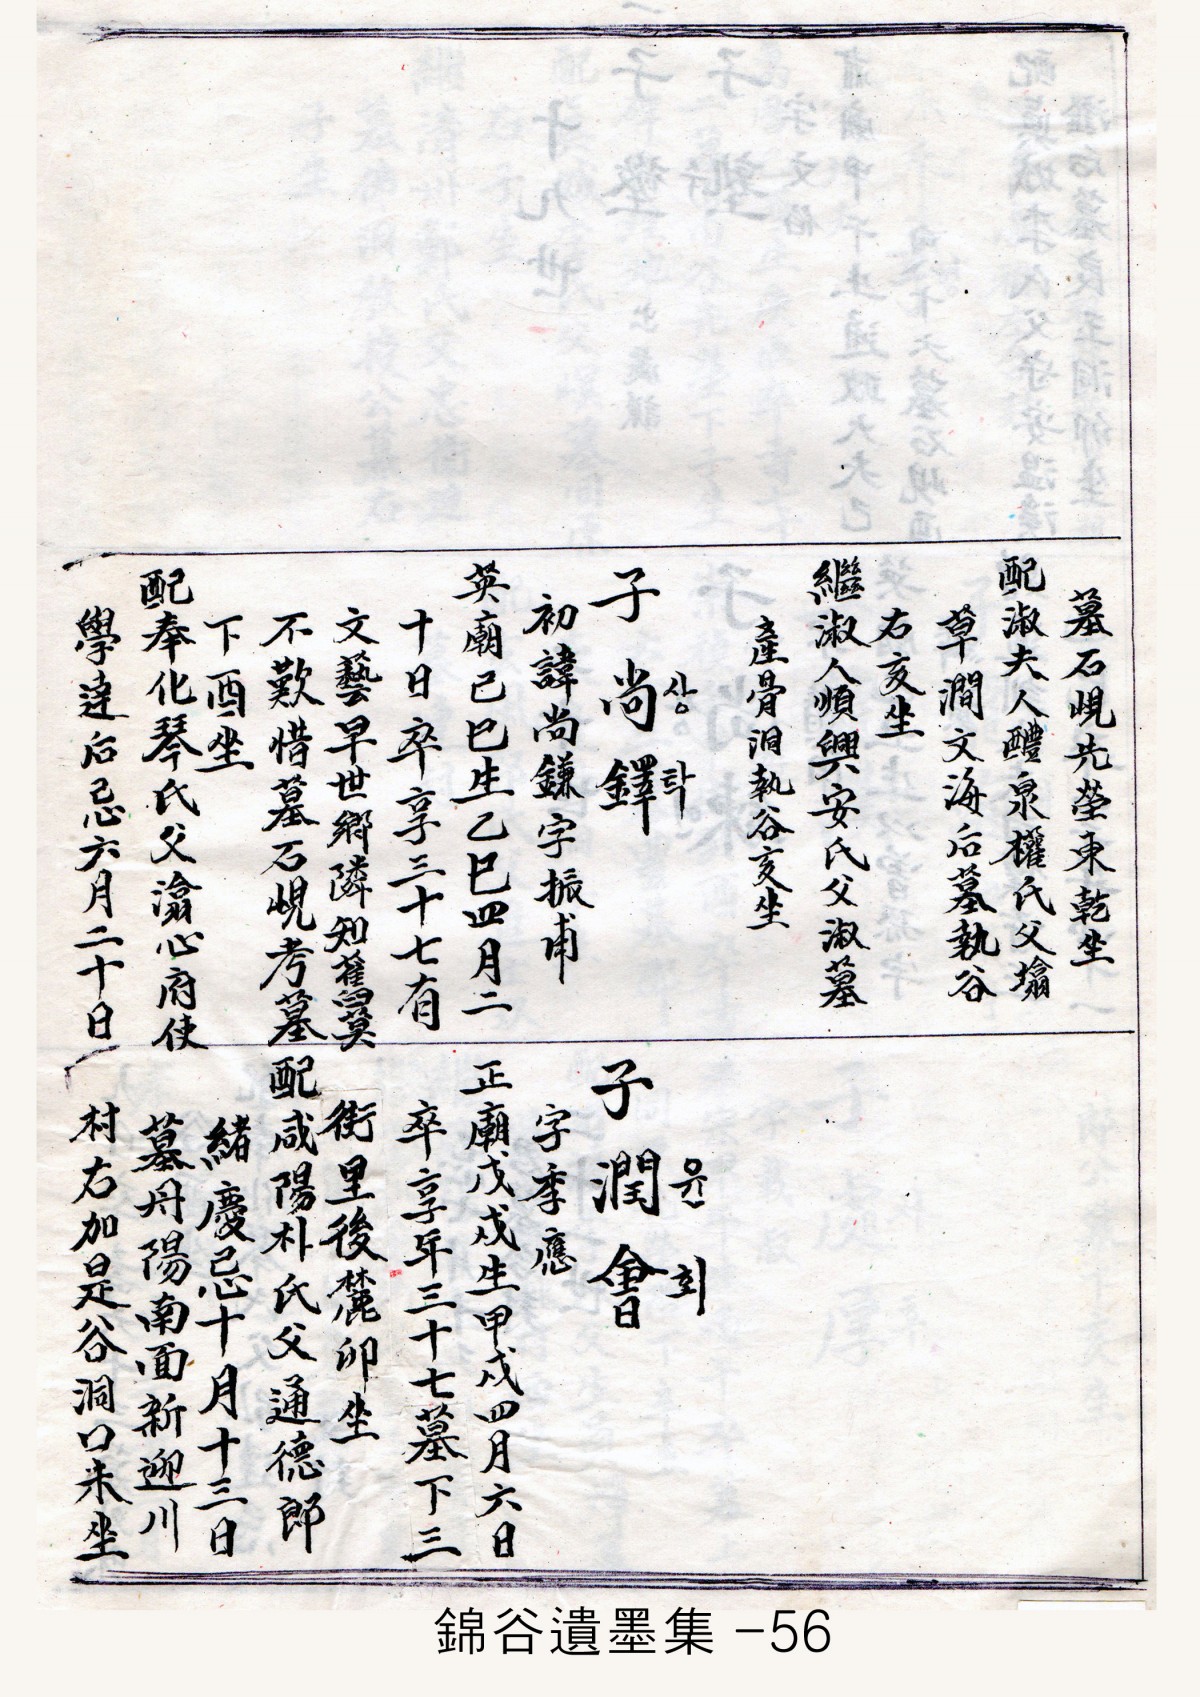 墓石峴先塋東乾坐
配淑夫人醴泉權氏父墧
草澗文海后墓執谷
右亥坐
繼淑人順興安氏父淑墓
産骨洞執谷亥坐
子 尚鐸
상탁
初諱尚鎌字振甫
英廟己巳生乙巳四月二
十日卒享三十七有
文藝早世鄉隣知舊莫
不歎惜墓石峴考墓
下酉坐
配奉化琴氏父瀹心府使
學達后忌六月二十日
子 潤會
윤회
字季應
正廟戊戌生甲戌四月六日
卒享年三十七墓下三
街里後麓卯坐
配咸陽朴氏父通德郎
緖慶忌十月十三日
墓丹陽南面新迎川
村右加是谷洞口未坐
錦谷遺墨集 -56